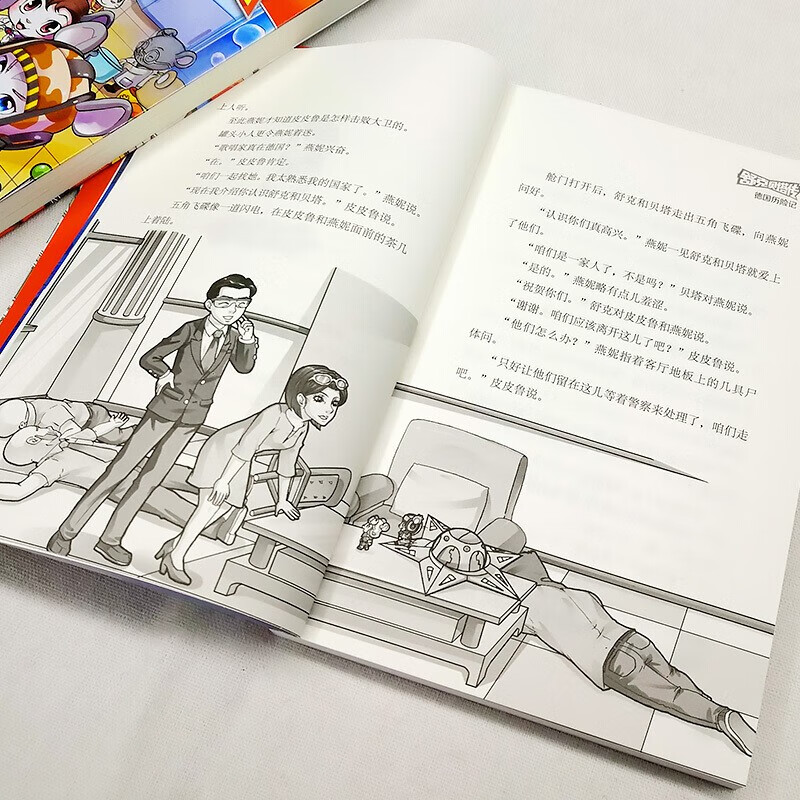 上人听。
至此燕妮才知道皮皮鲁是怎样击败大卫的。
罐头小人更令燕妮着迷。
“歌唱家真在德国？”燕妮兴奋。
“在。”皮皮鲁肯定。
“咱们一起找她。我太熟悉我的国家了。”燕妮说。
“现在我介绍你认识舒克和贝塔。”皮皮鲁说。
五角飞碟像一道闪电，在皮皮鲁和燕妮面前的茶几
上着陆。
舒克贝塔传
德国历险记
舱门打开后，舒克和贝塔走出五角飞碟，向燕妮
问好。
“认识你们真高兴。”燕妮一见舒克和贝塔就爱上
了他们。
“咱们是一家人了，不是吗？”贝塔对燕妮说。
“是的。”燕妮略有点儿羞涩。
“祝贺你们。”舒克对皮皮鲁和燕妮说。
“谢谢。咱们应该离开这儿了吧？”皮皮鲁说。
“他们怎么办？”燕妮指着客厅地板上的几具尸
体问。
“只好让他们留在这儿等着警察来处理了，咱们走
吧。”皮皮鲁说。